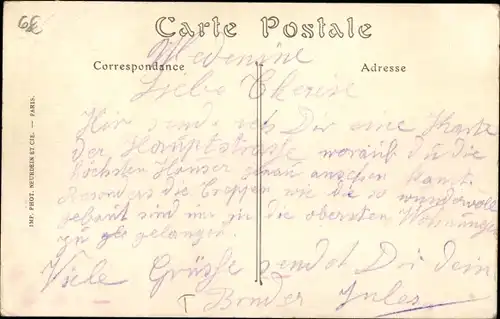 6€
Carte Postale
Correspondance
Adresse
Medenine
Liebe Therese
Hir sende ich Dir eine Karte
der Hauptstrasse worauf du die
höchsten Häuser genau ansehen kannst.
Besonders die Treppen wie die so wundervoll
gebaut sind um in die obersten Wohnungen
zu gelangen.
Viele Grüsse sendet Dir dein
Bruder Jules
IMP. PHOT. NEURDEIN ET CIE. — PARIS.